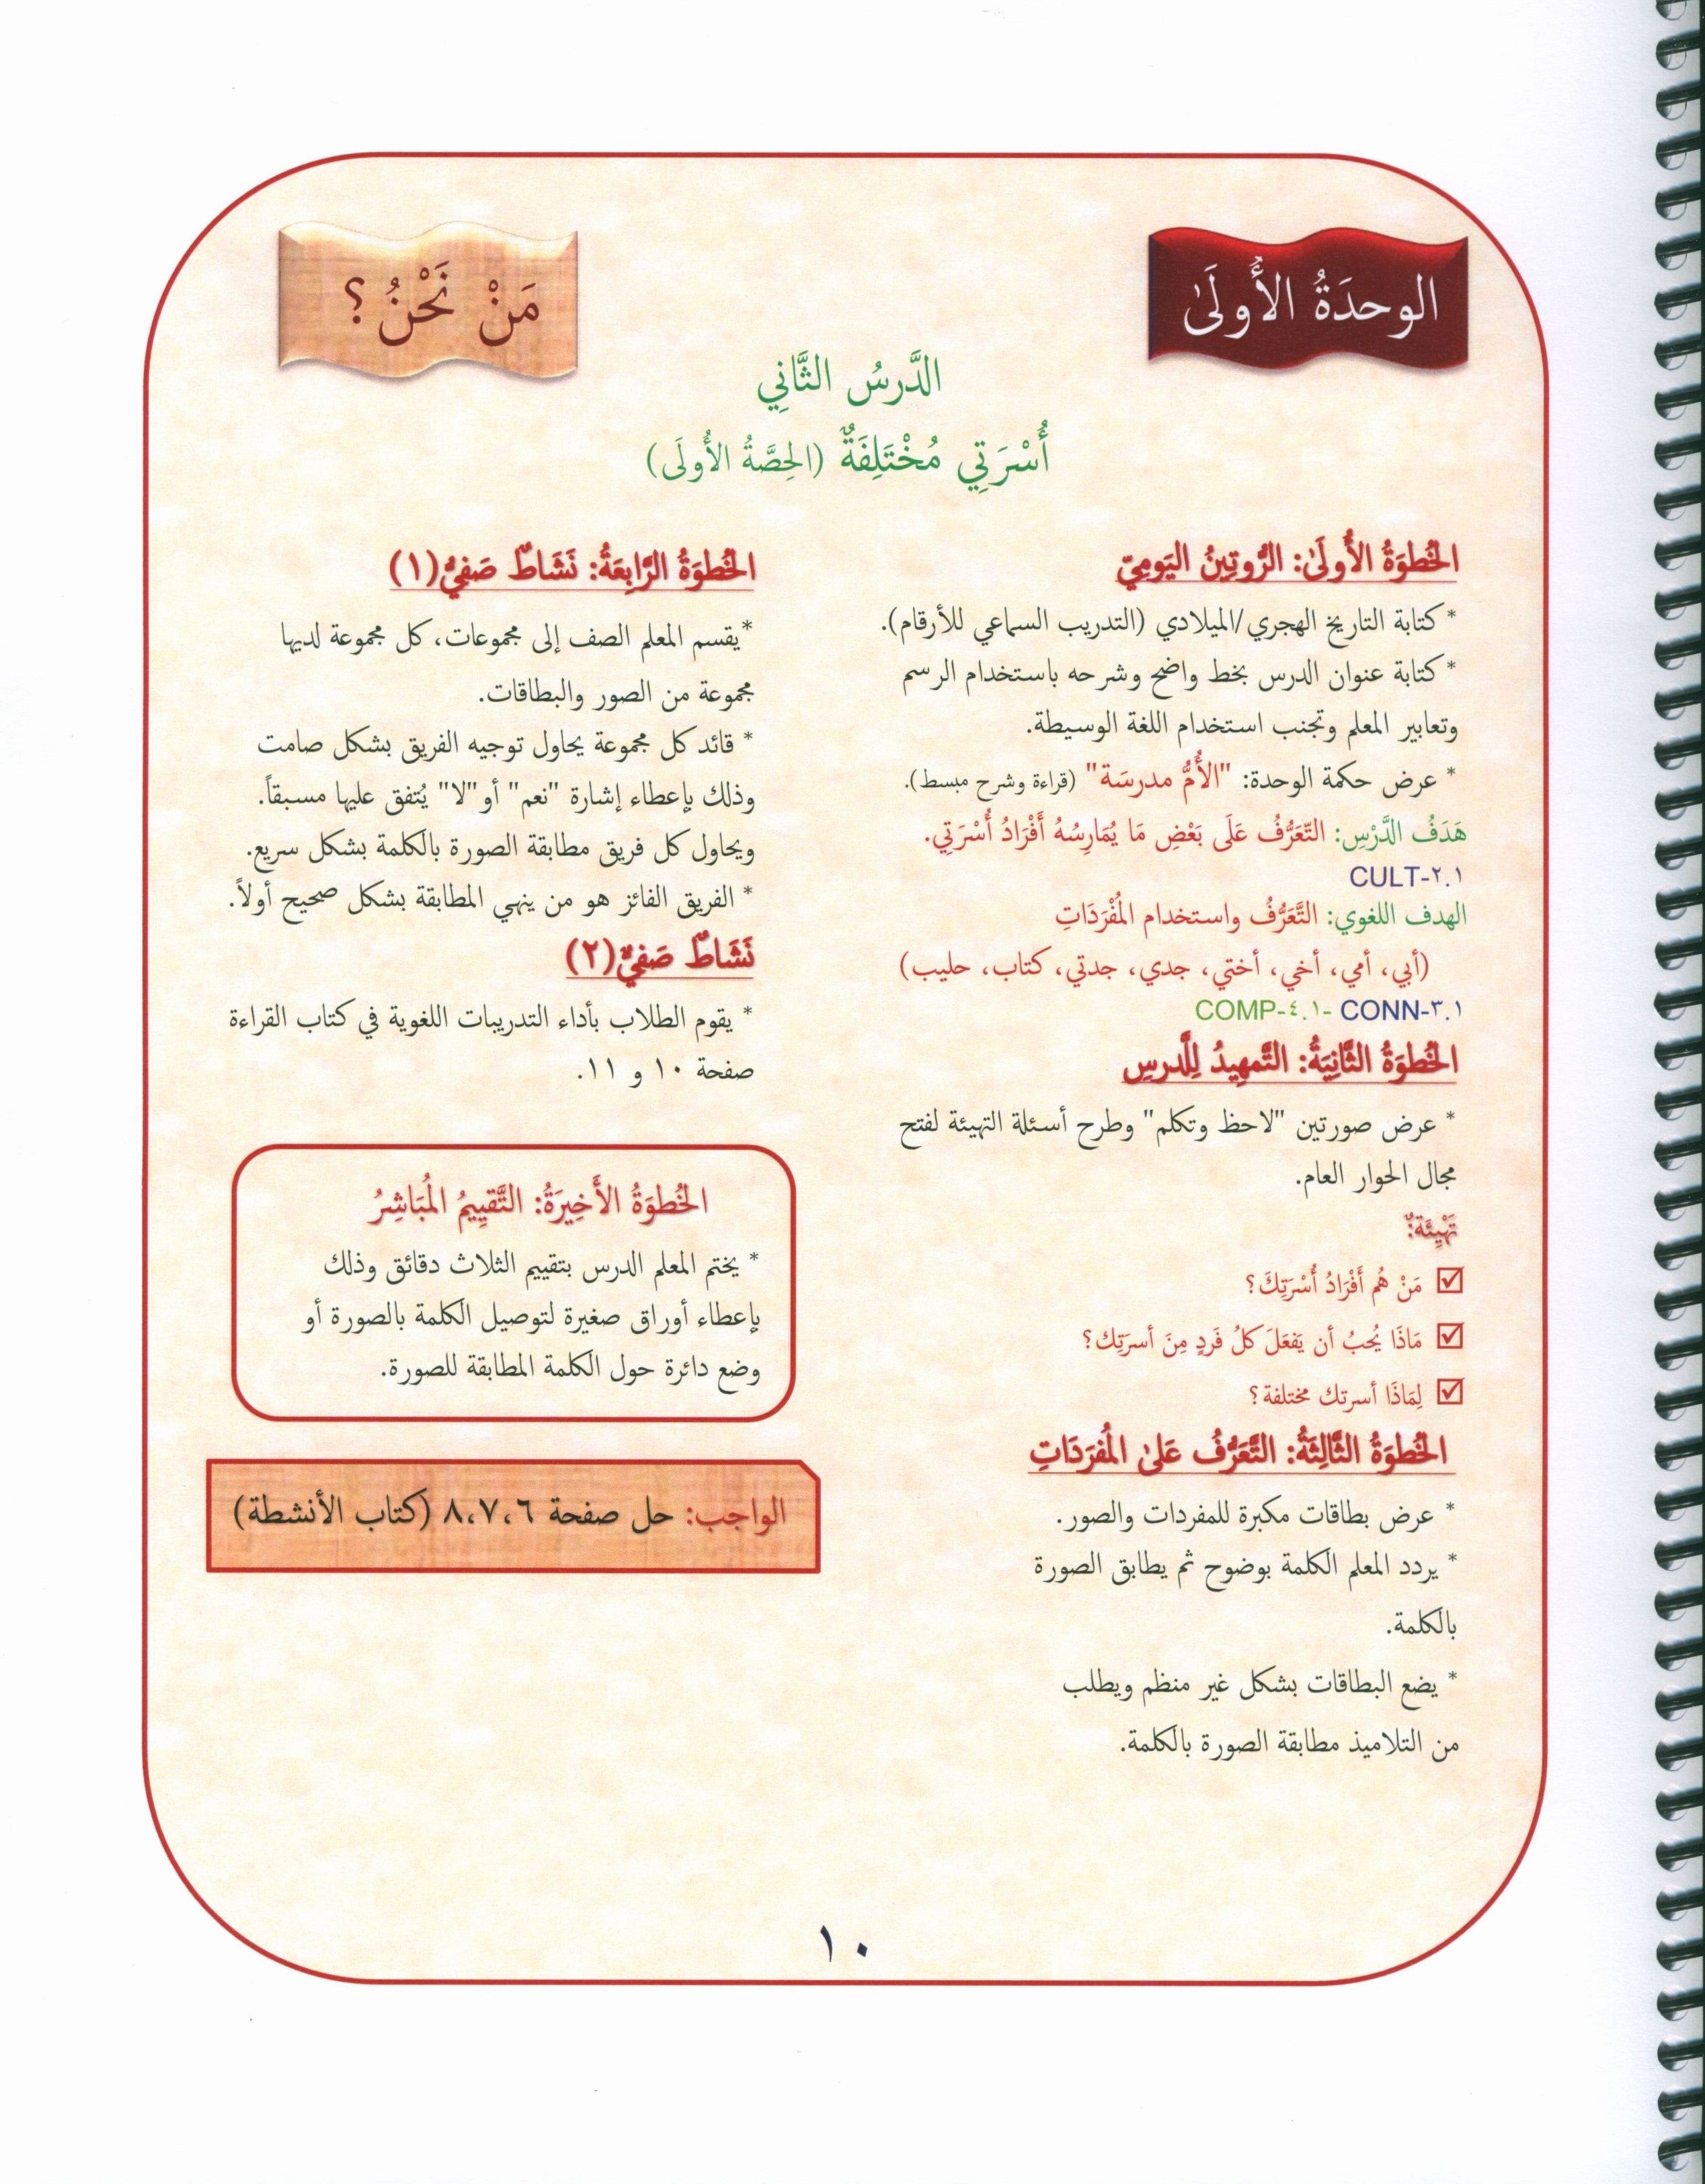 الوحدَةُ الأُولَىٰ
مَنْ نَحْنُ؟
الدَّرسُ الثَّانِي
أُسْرَتِي مُخْتَلِفَةٌ (الحِصَّةُ الأُولَى)
الخُطوَةُ الأُولَىٰ: الرُّوتِينُ اليَومِيّ
* كتابة التاريخ الهجري/الميلادي (التدريب السماعي للأرقام).
* كتابة عنوان الدرس بخط واضح وشرحه باستخدام الرسم
وتعابير المعلم وتجنب استخدام اللغة الوسيطة.
* عرض حكمة الوحدة: "الأُمُّ مدرسَة" (قراءة وشرح مبسط).
هَدَفُ الدَّرْسِ: التّعَرُّفُ عَلَى بَعْضِ مَا يُمَارِسُهُ أَفْرَادُ أُسْرَتِي.
CULT-٢.١
الهدف اللغوي: التَّعَرُّفُ واستخدام المُفْرَدَاتِ
(أبي، أمي، أخي، أختي، جدي، جدتي، كتاب، حليب)
COMP-٤.١- CONN-٣.١
الخُطوَةُ الثَّانِيَةُ: التَّمهِيدُ لِلَّدرسِ
* عرض صورتين "لاحظ وتكلم" وطرح أسئلة التهيئة لفتح
مجال الحوار العام.
تَهْيِئَة:
☑ مَنْ هُم أَفْرَادُ أُسْرَتِكَ؟
☑ مَاذَا يُحِبُ أن يَفعَلَ كلُ فَردٍ مِنَ أسرَتِك؟
☑ لِمَاذَا أسرتك مختلفة؟
الخُطوَةُ الثَّالِثَةُ: التَّعَرُّفُ عَلىٰ المُفرَدَاتِ
* عرض بطاقات مكبرة للمفردات والصور.
* يردد المعلم الكلمة بوضوح ثم يطابق الصورة
بالكلمة.
* يضع البطاقات بشكل غير منظم ويطلب
من التلاميذ مطابقة الصورة بالكلمة.
الخُطوَةُ الرَّابِعَةُ: نَشَاطٌ صَفيٌّ(١)
*يقسم المعلم الصف إلى مجموعات، كل مجموعة لديها
مجموعة من الصور والبطاقات.
* قائد كل مجموعة يحاول توجيه الفريق بشكل صامت
وذلك بإعطاء إشارة "نعم" أو"لا" يُتفق عليها مسبقاً.
ويحاول كل فريق مطابقة الصورة بالكلمة بشكل سريع.
* الفريق الفائز هو من ينهي المطابقة بشكل صحيح أولاً.
نَشَاطٌ صَفيٌّ(٢)
* يقوم الطلاب بأداء التدريبات اللغوية في كتاب القراءة
صفحة ١٠ و ١١.
الخُطوَةُ الأَخِيرَةُ: التَّقيِيمُ المُبَاشِرُ
* يختم المعلم الدرس بتقييم الثلاث دقائق وذلك
بإعطاء أوراق صغيرة لتوصيل الكلمة بالصورة أو
وضع دائرة حول الكلمة المطابقة للصورة.
الواجب: حل صفحة ٨،٧،٦ (كتاب الأنشطة)
١٠